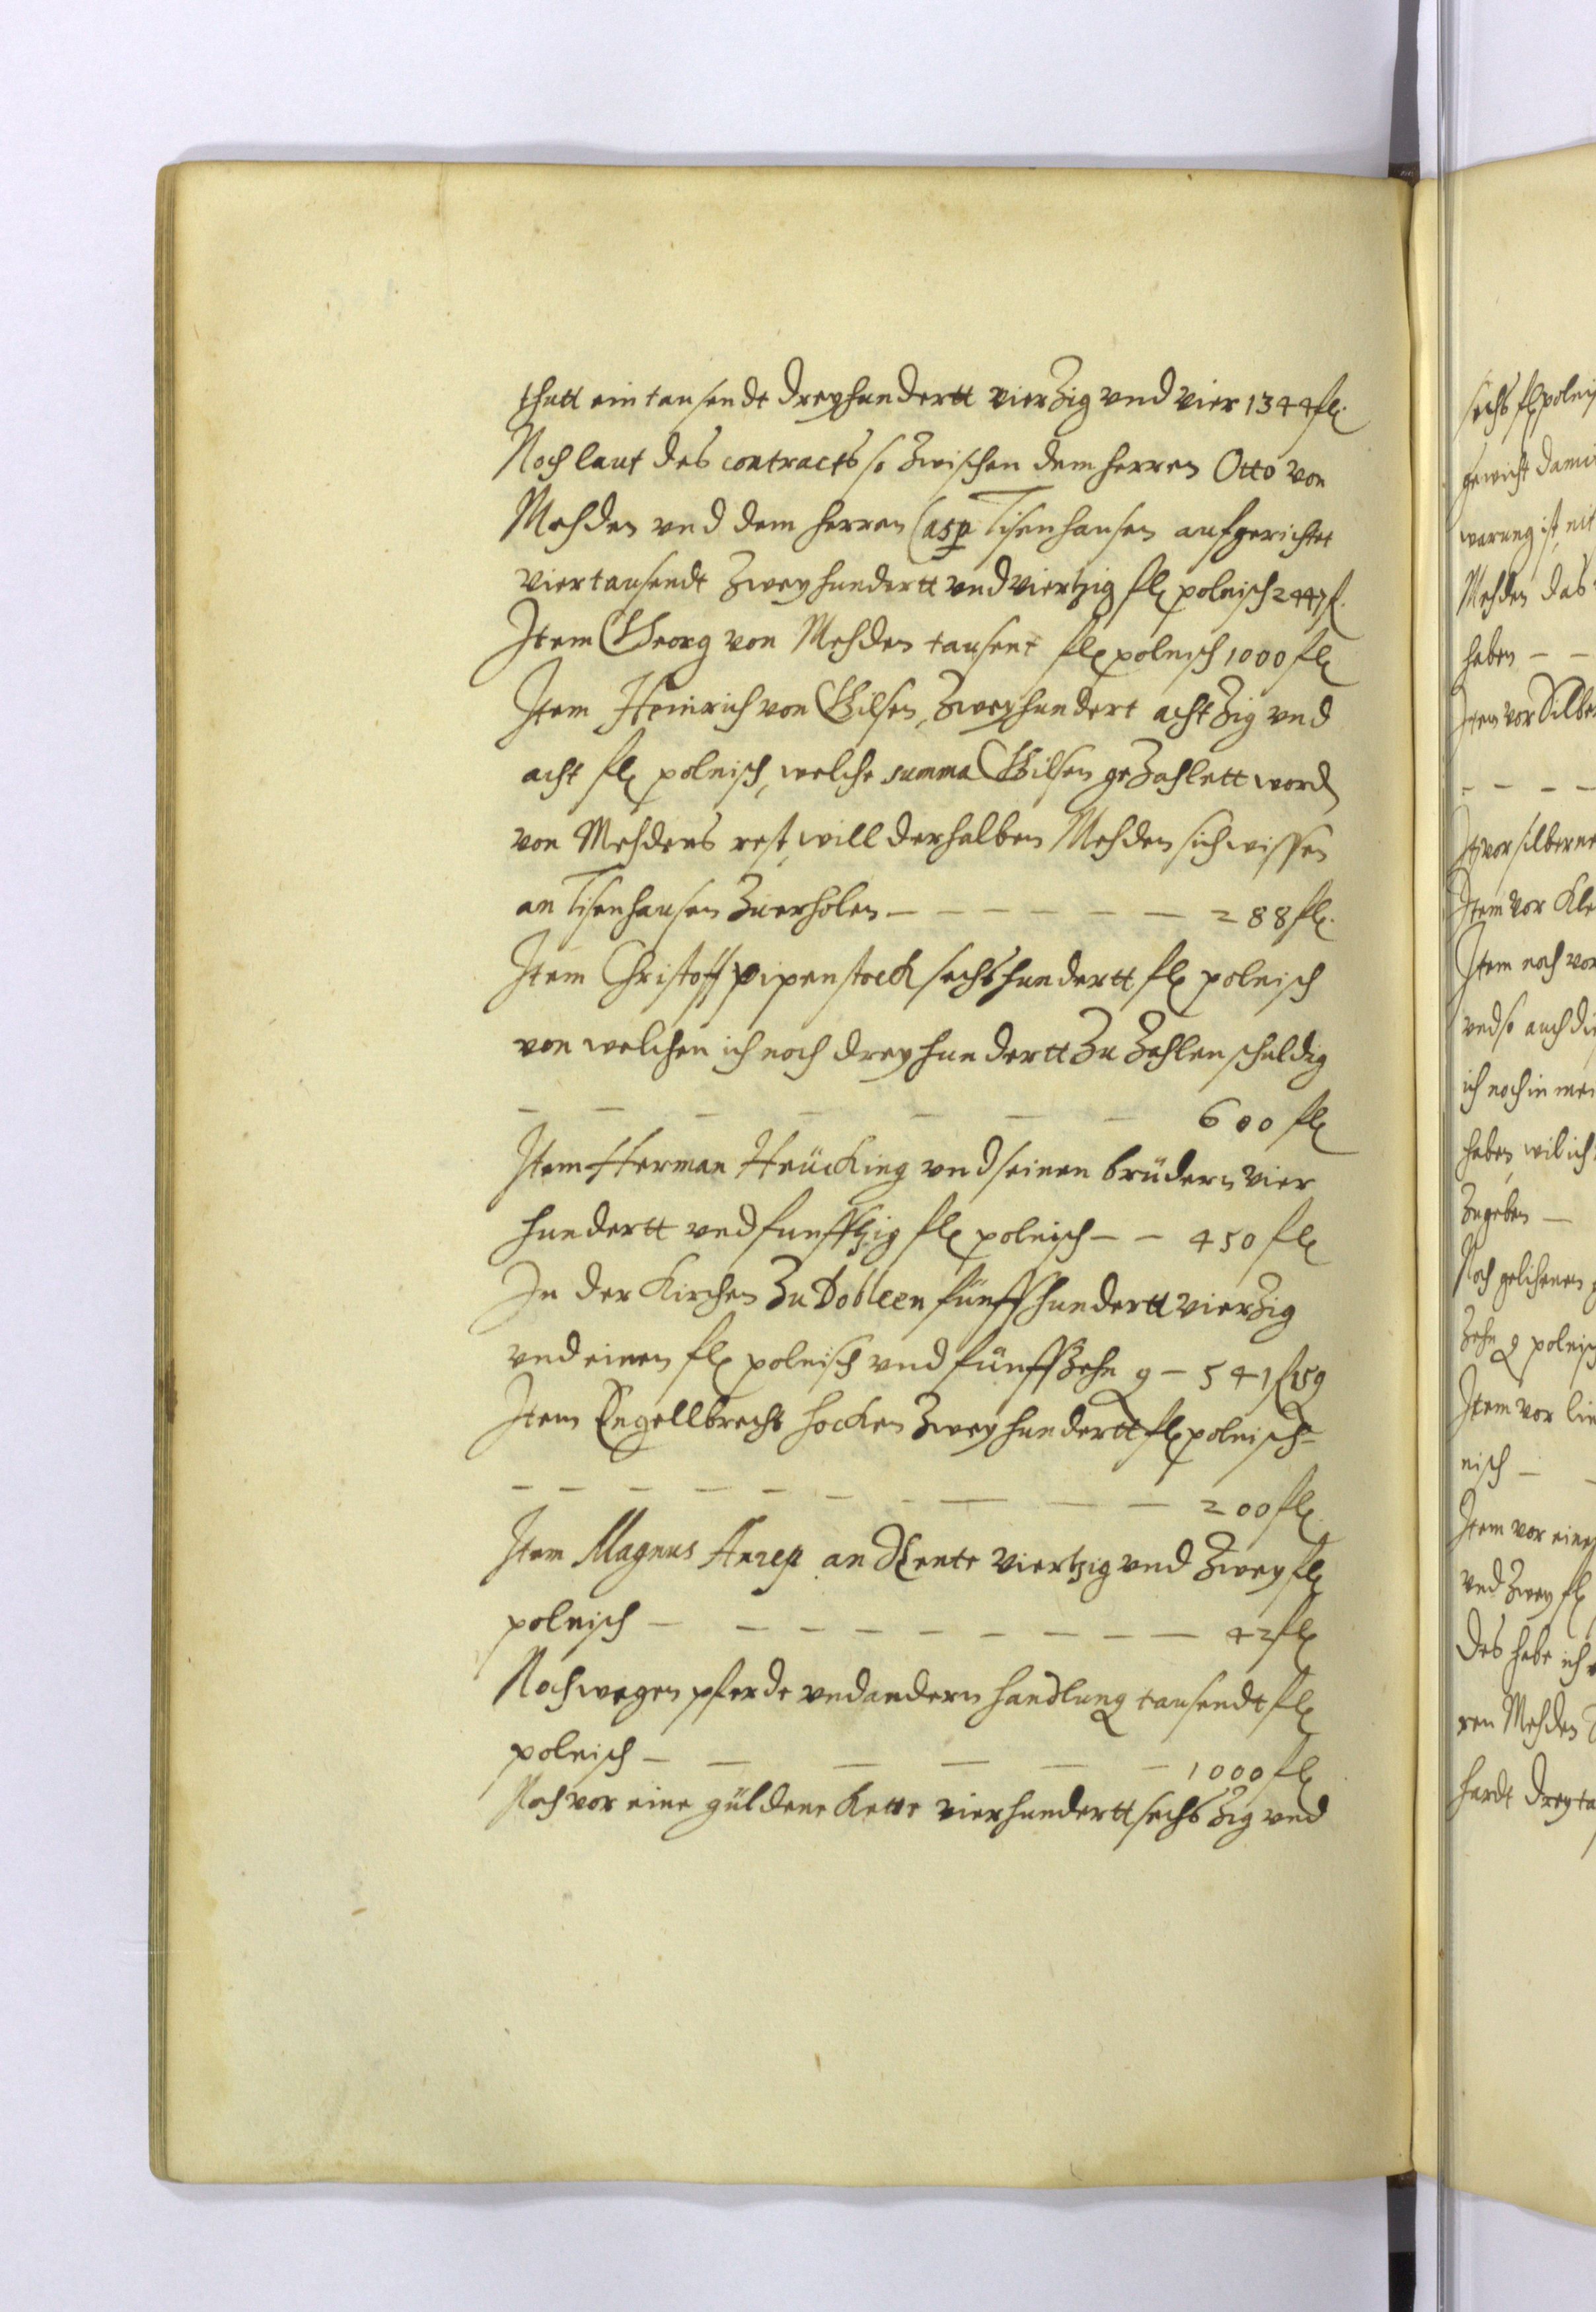 thutt ein tausendt dreyhundertt vierzig vnd vier 1344 fl.
Noch laut des contracts so zwischen dem herren Otto von
Mehden vnd dem herren Casp Tisenhausen aufgerichtet
viertausendt zweyhundertt vnd viertzig fl polnisch
Item Georg von Mehden tausent fl polnisch 1000 fl
Item Heinrich von Gilsen, zweyhundert achtzig vnd
acht fl polnisch, welche summa Gilsen gezahlett word
von Mehdens rest, will derhalben Mehden sich wissen
an Tisenhausen zuerholen - - - - - - - 288 fl.
Item Christoff pipenstock sechshundertt fl polnisch
von welchen ich noch dreyhundertt zu zahlen schuldig
- - - - - - - 600 fl
Item Herman Hrücking vnd seinen brüdern vier
hundertt vnd funfftzig fl polnisch - - 450 fl
In der Kirchen zu Dobleen fünffhundertt vierzig
vnd einen fl polnisch vnd fünffzehn g - 541 fl 15 g
Item Engellbrecht hocken zweyhundertt fl polnisch
- - - - - - - - - - 200 fl.
Item Magnus Anrep an Rente viertzig vnd zwey fl
polnisch - - - - - - - - - 42 fl
Noch wegen pferde vnd andern handlung tausendt fl
polnisch - - - - - - 1000 fl
Noch vor eine güldene kette vierhundertt sechszig vnd
sechs fl polnis
gewicht
warung ist
Mehden das
haben - -
Item vor Silbe
- - - -
It vor silberne
Item vor Kle
Item noch vor
vnd so auch di
ich noch in
haben, wil ich
zugeben -
Noch gelihenen
zehn g polnisch
Item vor
nisch -
Item vor einen
vnd zwey fl
des habe ich
ren Mehden
hardt dreyta